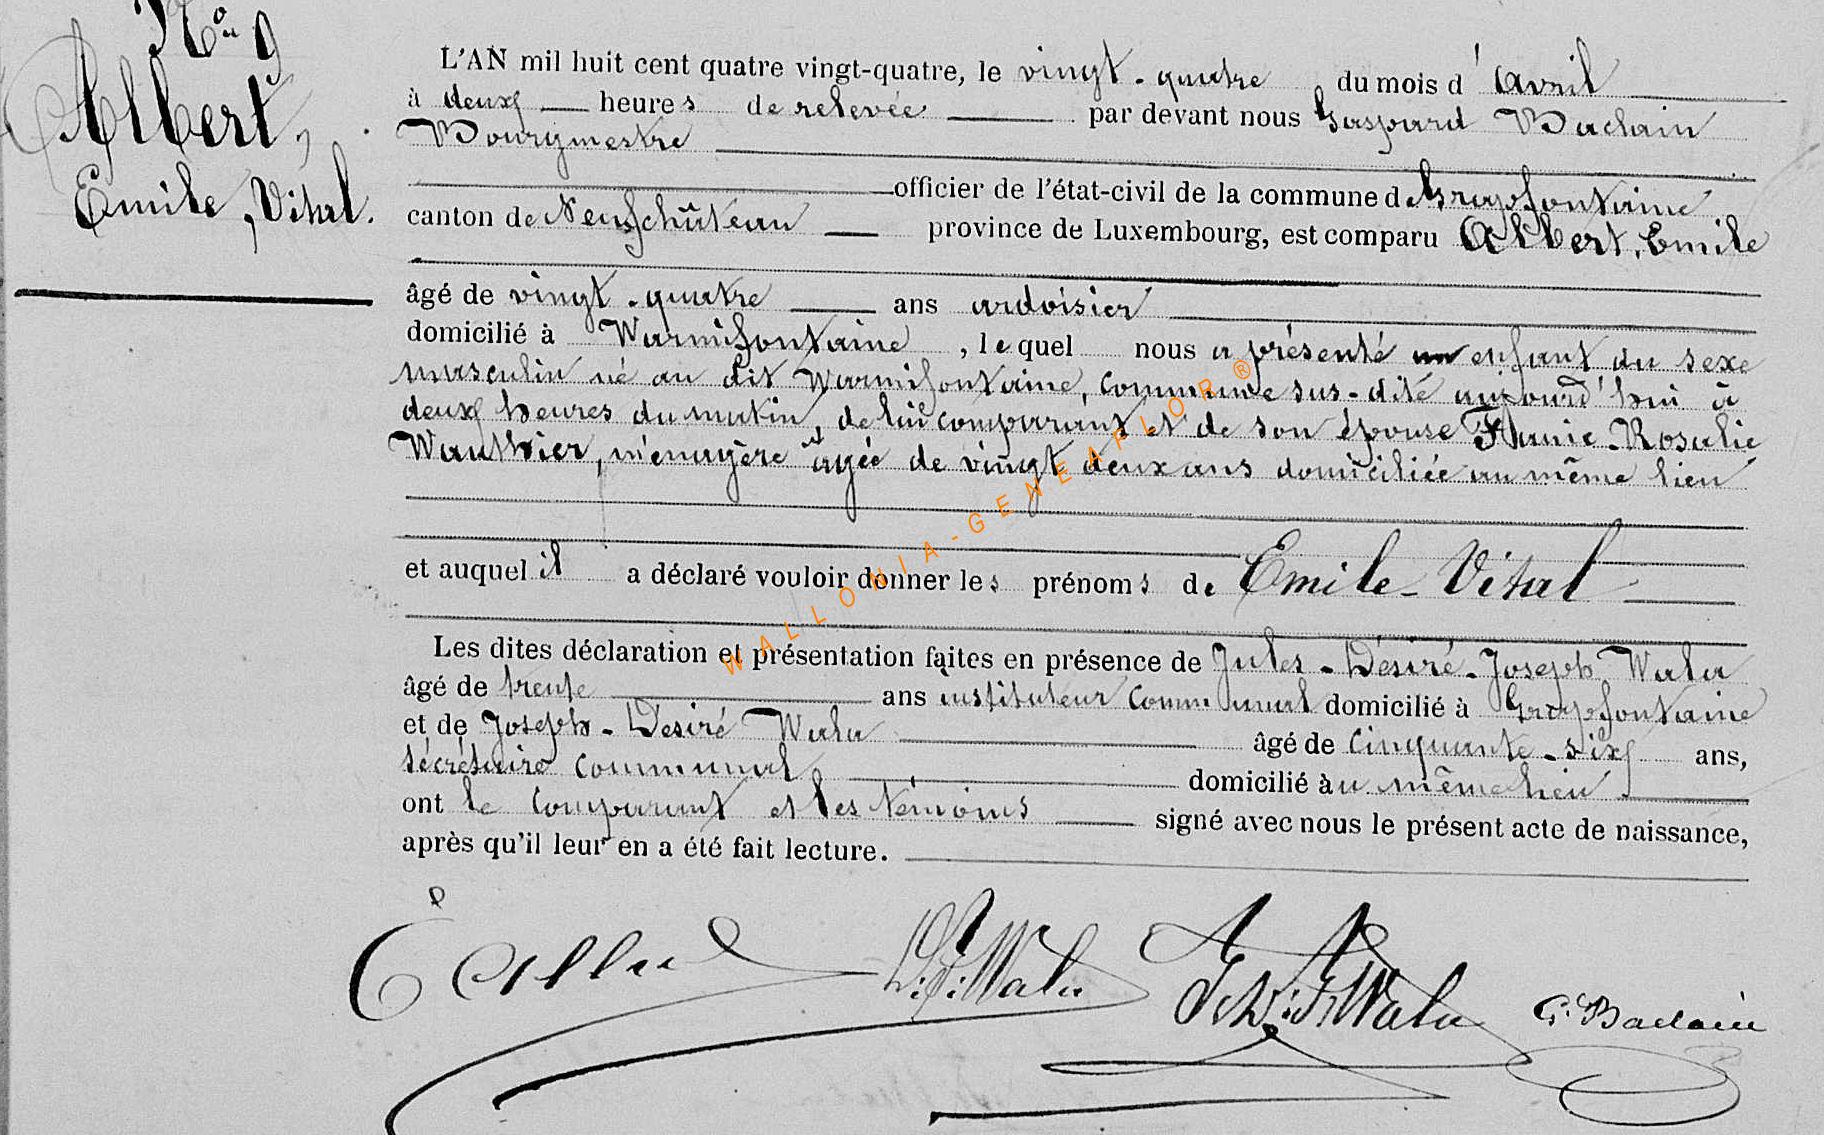 No 9
Albert,
Emile, Vital.
L'AN mil huit cent quatre vingt-quatre, le vingt-quatre du mois d'avril
à deux heures de relevée par devant nous Gaspard Baclain
Bourgmestre
officier de l'état-civil de la commune de Grapfontaine
canton de Neufchâteau province de Luxembourg, est comparu Albert, Emile
âgé de vingt-quatre ans ardoisier
domicilié à Warmifontaine, lequel nous a présenté un enfant du sexe
masculin né au dit Warmifontaine, commune sus-dite aujourd'hui à
deux heures du matin, de lui comparant et de son épouse Rosalie
Wauthier, ménagère âgée de vingt deux ans domiciliée au même lieu
et auquel il a déclaré vouloir donner les prénoms de Emile-Vital
Les dites déclaration et présentation faites en présence de Jules-Désiré-Joseph Wala
âgé de trente ans instituteur communal domicilié à Grapfontaine
et de Joseph-Désiré Wala âgé de cinquante-six ans,
sécrétaire communal domicilié au même lieu
ont le comparant et les témoins signé avec nous le présent acte de naissance,
après qu'il leur en a été fait lecture.
E Albert Wala Wala G. Baclain
WALLONIA-GENEAFLOR ®